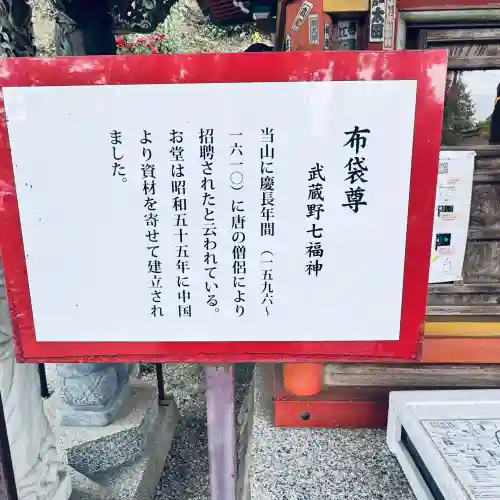 布袋尊
武蔵野七福神
当山に慶長年間（一五九六〜
一六一〇）に唐の僧侶により
招聘されたと云われている。
お堂は昭和五十五年に中国
より資材を寄せて建立され
ました。